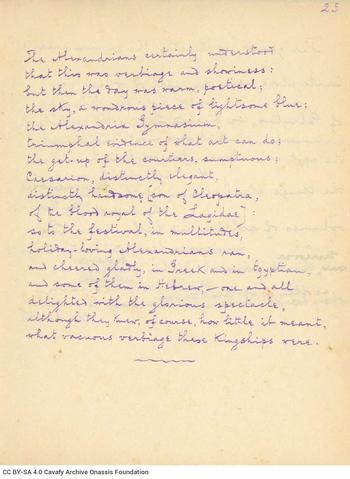 23
The Alexandrians certainly understood
that this was verbiage and showiness:
but then the day was warm, poetical;
the sky, a wondrous piece of lightsome blue;
the Alexandria Gymnasium,
triumphal evidence of what art can do;
the get-up of the courtiers, sumptuous;
Caesarion, distinctly elegant,
distinctly handsome [son of Cleopatra,
of the blood royal of the Lagidae]:
so to the festival, in multitudes,
holiday-loving Alexandrians ran,
and cheered gladly, in Greek and in Egyptian,
and some of them in Hebrew, — one and all
delighted with the glorious spectacle,
although they knew, of course, how little it meant,
what vacuous verbiage these Kingships were.
CC BY-SA 4.0 Cavafy Archive Onassis Foundation